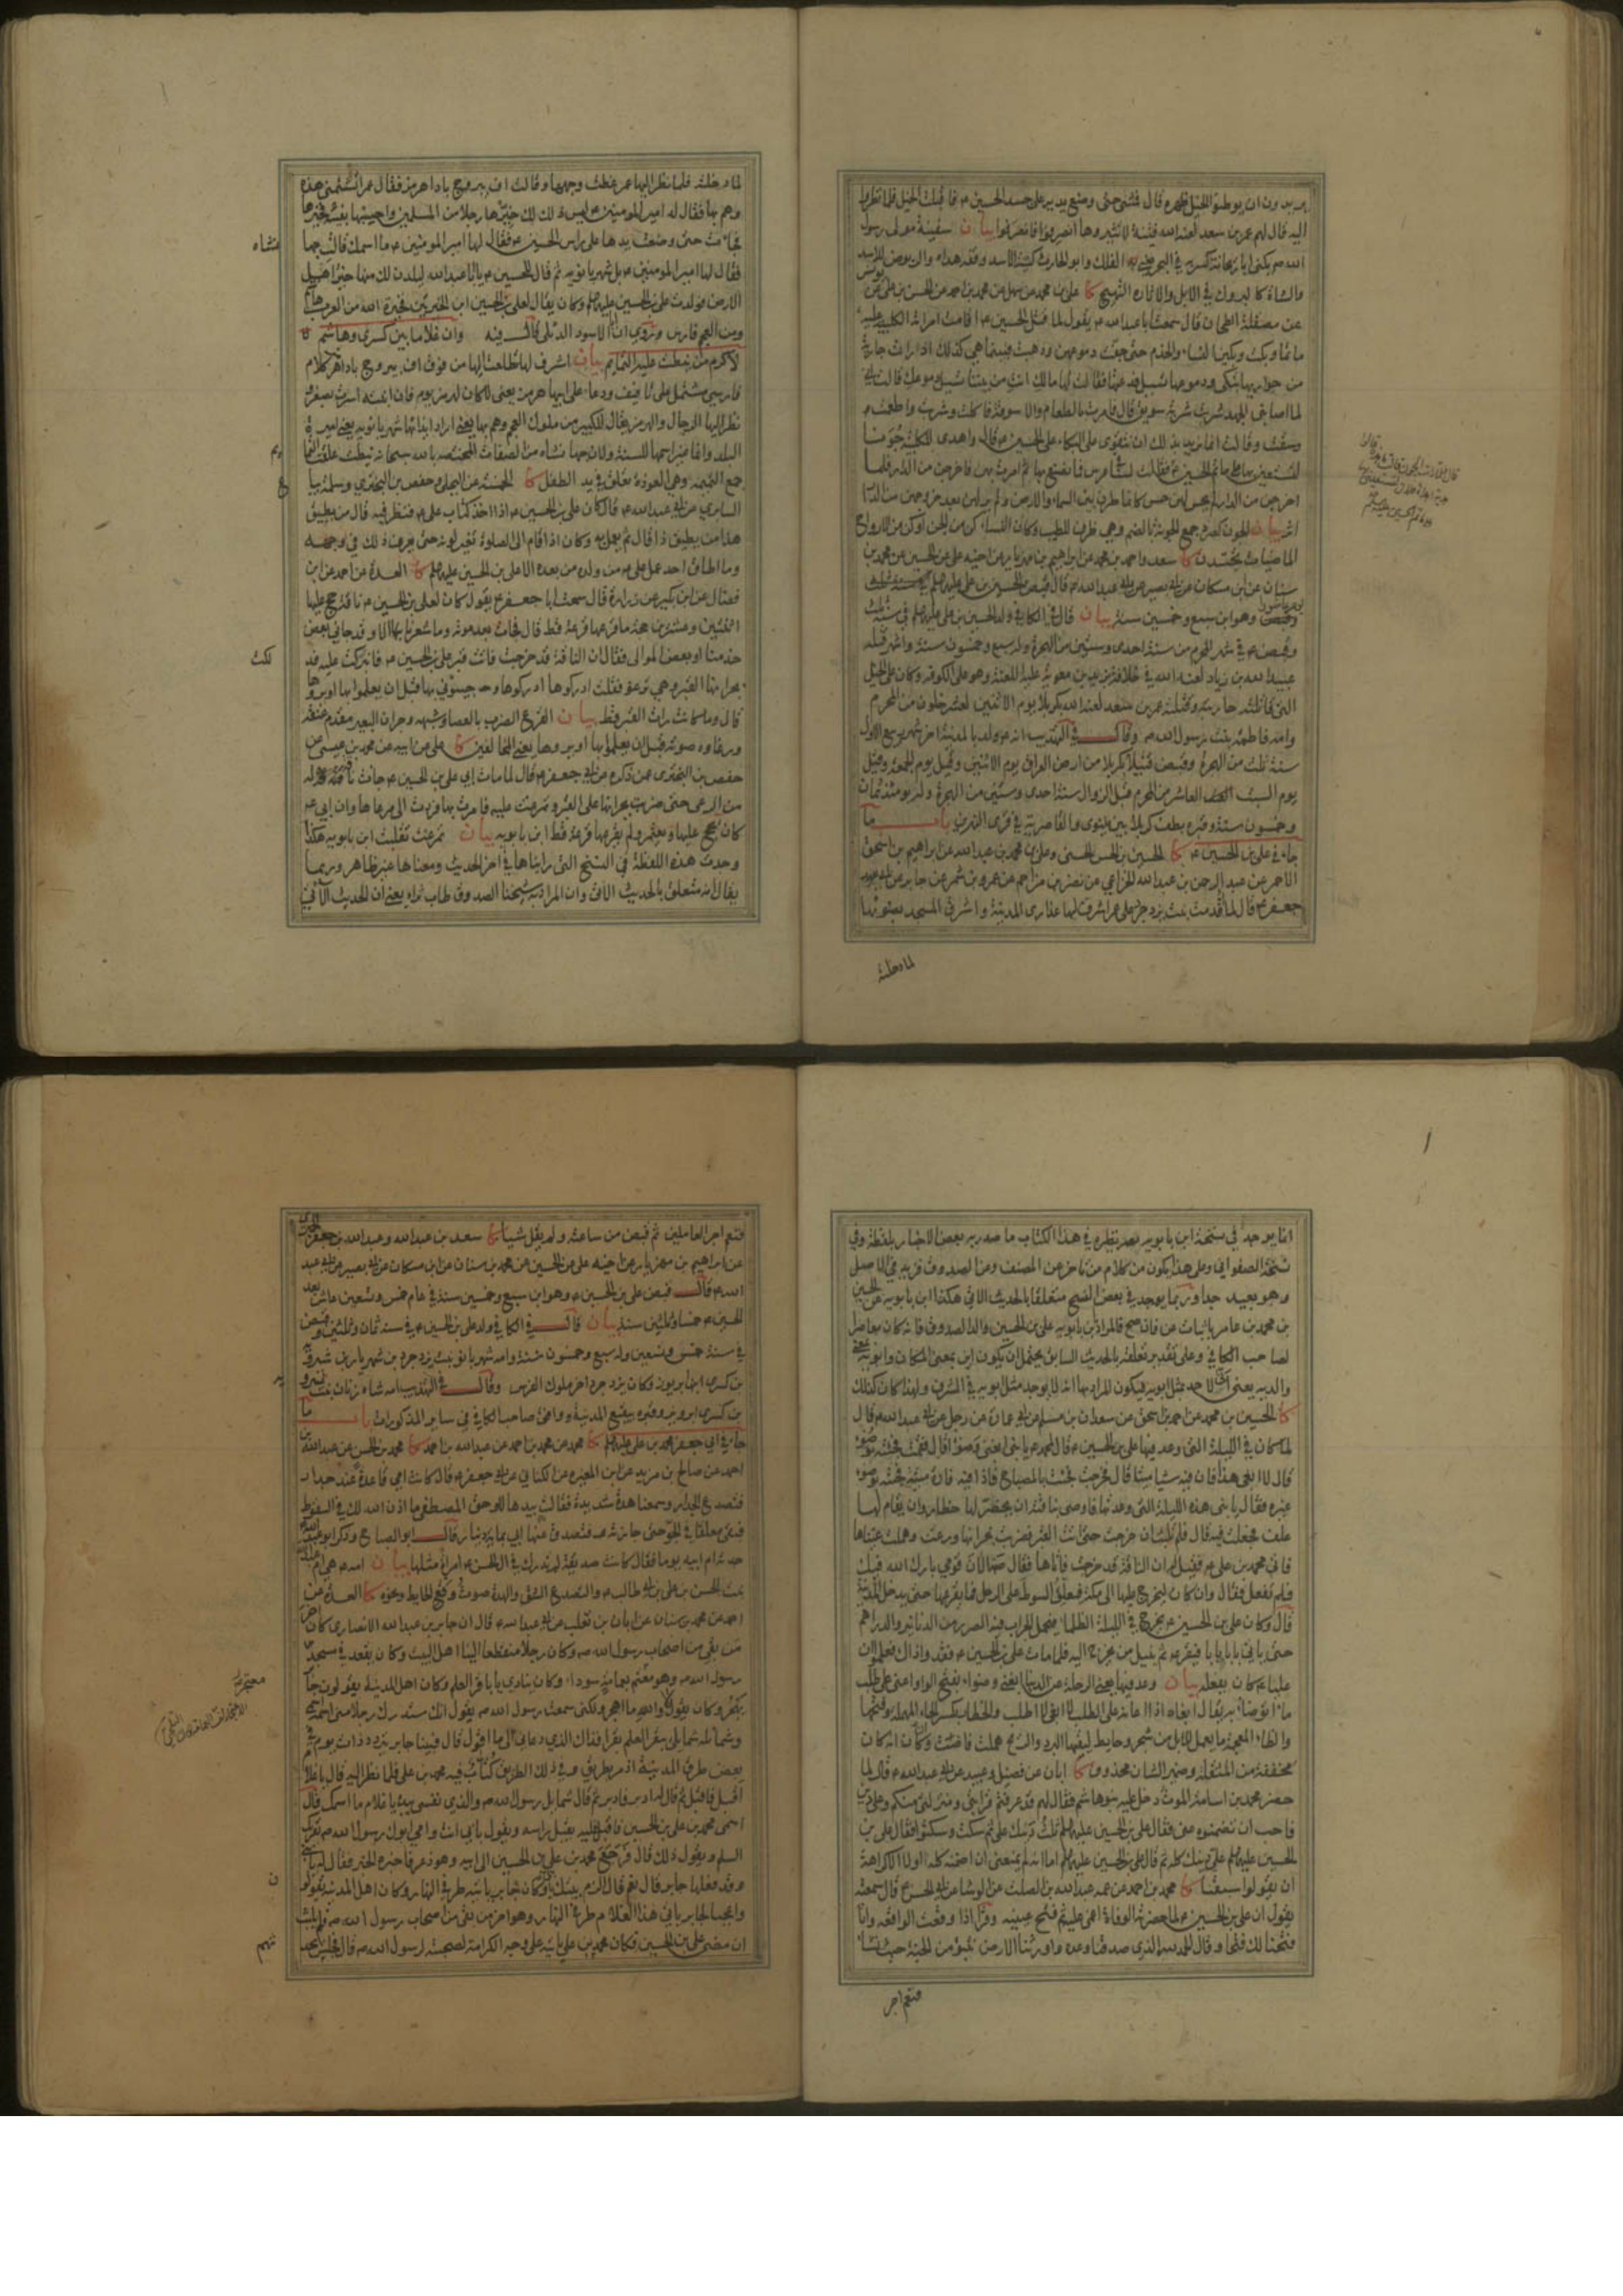 يريدون ان يوطئوا الخيل ظهره قال فمشى حتى وضع يديه على جسد الحسين ع فاقبلت الخيل فلما نظروا
اليه قال لهم عمر بن سعد لعنه الله فتنة لا تثيروها انصرفوا فانصرفوا بيان سفينة مولى رسول
الله ص يكنى ابا ريحانة كسر به في البحر يعني به الفلك وابو الحارث كنية الاسد
والشاة كالبروك في الابل والاثارة التهييج كا علي بن محمد عن سهل عن محمد بن احمد عن الحسن بن علي عن
عن مصقلة الطحان قال سمعت ابا عبد الله ع يقول لما قتل الحسين ع اقامت امراته الكلبية عليه
ماتما وبكت وبكين النساء والخدم حتى جفت دموعهن وذهبت فبينا هي كذلك اذ رات جارية
من جواريها تبكي ودموعها تسيل فدعتها فقالت لها مالك انت من بيننا تسيل دموعك قالت اني
لما اصابني الجهد شربت شربة سويق قال فامرت بالطعام والاسوقة فاكلت وشربت واطعمت
وسقت وقالت انما نريد بذلك ان نتقوى على البكاء على الحسين ع قال واهدى للكلبية جونا
لتستعين بها على ماتم الحسين ع فقالت لسنا في عرس فما نصنع بها ثم امرت بهن فاخرجن من الدار فلما
اخرجن من الدار لم يحس لهن حس كانما طرن بين السماء والارض ولم ير لهن بعد خروجهن من الدار
اثر بيان الجون كصرد جمع الجونة بالضم وهي ظرف للطيب وكان النساء كن من الجن او كن من الارواح
الماضيات تجسدن كا سعد واحمد بن محمد عن ابراهيم بن مهزيار عن اخيه علي عن الحسين عن محمد بن
سنان عن ابن مسكان عن ابي بصير عن ابي عبد الله ع قال قبض الحسين بن علي عليهما السلم
وهو ابن سبع وخمسين سنة بيان قال في الكافي ولد الحسين بن علي عليهما السلم في سنة ثلث
وقبض ع في شهر المحرم من سنة احدى وستين من الهجرة وله سبع وخمسون سنة واشهر قتله
عبيد الله بن زياد لعنه الله في خلافة يزيد بن معوية عليه اللعنة وهو على الكوفة وكان على الخيل
التي قاتلته حاربته وقتلته عمر بن سعد لعنه الله بكربلا يوم الاثنين لعشر خلون من المحرم
وامه فاطمة بنت رسول الله ص وقال في التهذيب انه ع ولد بالمدينة اخر شهر ربيع الاول
سنة ثلث من الهجرة وقبض قتيلا بكربلا من ارض العراق يوم الاثنين وقيل يوم الجمعة وقيل
يوم السبت العاشر من المحرم قبل الزوال سنة احدى وستين من الهجرة وله يومئذ ثمان
وخمسون سنة وقبره بطف كربلا بين نينوى والغاضرية في قرى النهرين باب ما
جاء في علي بن الحسين ع كا الحسين بن الحسن الحسني وعلي بن محمد بن عبد الله عن ابراهيم بن اسحق
الاحمر عن عبد الرحمن بن عبد الله الخزاعي عن نصر بن مزاحم عن عمرو بن شمر عن جابر عن ابي
جعفر ع قال لما قدمت بنت يزدجرد على عمر اشرف لها عذارى المدينة واشرق المسجد بضوئها
لما دخلته
لما دخلته فلما نظر اليها عمر غطت وجهها وقالت اف بيروج بادا هرمز فقال عمر اتشتمني هذه
وهم بها فقال له امير المومنين ع ليس ذلك لك خيرها رجلا من المسلمين واحسبها بفيئه فخيرها
فجاءت حتى وضعت يدها على راس الحسين ع فقال لها امير المومنين ع ما اسمك قالت جها
نشاه
فقال لها امير المومنين ع بل شهربانويه ثم قال للحسين ع يا ابا عبد الله ليلدن لك منها خير اهل
الارض فولدت علي بن الحسين عليهما السلم وكان يقال لعلي بن الحسين ابن الخيرتين فخيرة الله من العرب هاشم
ومن العجم فارس وروي ان ابا الاسود الدئلي قال فيه وان غلاما بين كسرى وهاشم
لاكرم من نيطت عليه التمايم بيان اشرف لها تطلعت اليها من فوق اف بيروج بادا هرمز كلام
فارسي مشتمل على تافيف ودعاء على ابيها هرمز يعني لا كان لهرمز يوم فان ابنته اسرت بصغر و
نظر اليها الرجال والهرمز يقال للكبير من ملوك العجم وهم بها يعني اراد ايذائها شهربانويه يعني اميرة
البلد وانما غير اسمها للسنة ولان جهانشاه من الصفات المختصة بالله سبحانه نيطت علقت التما
يم
جمع التميمة وهي العوذة تعلق في يد الطفل كا الخمسة عن البجلي وحفص بن البختري وسلمة بيا
ع
السابري عن ابي عبد الله ع قال كان علي بن الحسين ع اذا اخذ كتاب علي ع فنظر فيه قال من يطيق
هذا من يطيق ذا قال ثم يعمل به وكان اذا قام الى الصلوة تغير لونه حتى يعرف ذلك في وجهه
وما اطاق احد عمل علي ع من ولده من بعده الا علي بن الحسين عليهما السلم كا العدة عن احمد عن ابن
فضال عن ابن بكير عن زرارة قال سمعت ابا جعفر ع يقول كان لعلي بن الحسين ع ناقة حج عليها
اثنتين وعشرين حجة ما قرعها قرعة قط قال فجاءت بعد موته وما شعرنا بها الا وقد جاءني بعض
خدمنا او بعض الموالي فقال ان الناقة قد خرجت فاتت قبر علي بن الحسين ع فانبركت عليه فد
لكت
بجرانها القبر وهي ترغو فقلت ادركوها ادركوها وجيئوني بها قبل ان يعلموا بها او يروها
قال وما كانت رات القبر قط بيان القرع الضرب بالعصا وشبهه وجران البعير مقدم عنقه
ورغاوه صوته قبل ان يعلموا بها او يروها يعني المخالفين كا علي عن ابيه عن محمد بن عيسى عن
حفص بن البختري عمن ذكره عن ابي جعفر ع قال لما مات ابي علي بن الحسين ع جاءت ناقة له
من الرعي حتى ضربت بجرانها على القبر وتمرغت عليه فامرت بها فردت الى مرعاها وان ابي ع
كان يحج عليها ويعتمر ولم يقرعها قرعة قط ابن بابويه بيان تمرغت تقلبت ابن بابويه هكذا
وجدت هذه اللفظة في النسخ التي رايناها في اخر الحديث ومعناها غير ظاهر وربما
يقال انه متعلق بالحديث الاتي وان المراد به شيخنا الصدوق طاب ثراه يعني ان الحديث الاتي
انما يوجد في نسخة ابن بابويه نظيره في هذا الكتاب ما صدر به بعض الاخبار بلفظة وفي
نسخة الصفواني وعلى هذا يكون من كلام من تاخر عن المصنف وعن الصدوق فزيد في الاصل
وهو بعيد جدا وربما يوجد في بعض النسخ متعلقا بالحديث الاتي هكذا ابن بابويه عن الحسين
بن محمد بن عامر باثبات عن فان صح فالمراد بابن بابويه علي بن الحسين والد الصدوق فانه كان معاصرا
لصاحب الكافي وعلى تقدير تعلقه بالحديث السابق يحتمل ان يكون اين بمعنى المكان وابويه
والديه يعني لا احد مثل ابويه فيكون المراد بها انه لا يوجد مثل ابويه في الشرف ولهذا كان كذلك
كا الحسين بن محمد عن احمد بن اسحق عن سعدان بن مسلم عن ابي عمارة عن رجل عن ابي عبد الله ع قال
لما كان في الليلة التي وعد فيها علي بن الحسين ع قال لمحمد ع يا بني ابغني وضوءا قال فقمت فجئته بوضوء
قال لا ابغي هذا فان فيه شيئا ميتا قال فخرجت فجئت بالمصباح فاذا فيه فارة ميتة فجئته بوضوء
غيره فقال يا بني هذه الليلة التي وعدتها فاوصى بناقته ان يحظر لها حظار وان يقام لها
علف فجعلت فيه قال فلم تلبث ان خرجت حتى اتت القبر فضربت بجرانها ورغت وهملت عيناها
فاتي محمد بن علي ع فقيل له ان الناقة قد خرجت فاتاها فقال صه الان قومي بارك الله فيك
فلم تفعل فقال وان كان ليخرج عليها الى مكة فيعلق السوط على الرحل فما يقرعها حتى يدخل المدينة
قال وكان علي بن الحسين ع يخرج في الليلة الظلماء فيحمل الجراب فيه الصرر من الدنانير والدراهم
حتى ياتي بابا بابا فيقرعه ثم ينيل من يخرج اليه فلما مات علي بن الحسين ع فقدوا ذاك فعلموا ان
عليا ع كان يفعله بيان وعد فيها يعني الرحلة عن الدنيا ابغني وضوءا بفتح الواو اعني على طلب
ماء اتوضأ به يقال ابغاه اذا اعانه على الطلب لا ابغي لا اطلب والحظار بكسر الحاء المهملة وفتحها
والظاء المعجمة ما يعمل للابل من شجر وحايط ليقيها البرد والريح هملت فاضت وكان انه كان
مخففة من المثقلة وضمير الشان محذوف كا ابان عن فضيل وعبيد عن ابي عبد الله ع قال لما
حضر محمد بن اسامة الموت دخل عليه بنو هاشم فقال لهم قد عرفتم قرابتي ومنزلتي منكم وعلي دين
فاحب ان تضمنوه عني فقال علي بن الحسين عليهما السلم ثلث دينك علي ثم سكت وسكتوا فقال علي بن
الحسين عليهما السلم علي دينك كله ثم قال علي بن الحسين عليهما السلم اما انه لم يمنعني ان اضمنه كله اولا الا كراهة
ان يقولوا سبقنا كا محمد بن احمد عن عمه عبد الله بن الصلت عن الوشا عن ابي الحسن ع قال سمعته
يقول ان علي بن الحسين ع لما حضرته الوفاة اغمي عليه ثم فتح عينيه وقرا اذا وقعت الواقعة وانا
فتحنا لك فتحا وقال الحمد لله الذي صدقنا وعده واورثنا الارض نتبوء من الجنة حيث نشاء
فنعم اجر
فنعم اجر العاملين ثم قبض من ساعته ولم يقل شيئا كا سعد بن عبد الله وعبد الله بن جعفر الحميري
عن ابراهيم بن مهزيار عن اخيه علي عن الحسين عن محمد بن سنان عن ابن مسكان عن ابي بصير عن ابي عبد
الله ع قال قبض علي بن الحسين ع وهو ابن سبع وخمسين سنة في عام خمس وتسعين عاش بعد
الحسين ع خمسا وثلثين سنة بيان قال في الكافي ولد علي بن الحسين ع في سنة ثمان وثلثين وقبض
في سنة خمس وتسعين وله سبع وخمسون سنة وامه شهربانو بنت يزدجرد بن شهريار بن شيرو
يه
بن كسرى ابرويز وكان يزدجرد اخر ملوك الفرس وقال في التهذيب امه شاه زنان بنت شيرو
يه
بن كسرى ابرويز وقبره ببقيع المدينة ووافق صاحب الكافي في ساير المذكورات باب ما
جاء في ابي جعفر محمد بن علي عليهما السلم كا محمد عن محمد بن احمد عن عبد الله بن احمد كا محمد بن الحسن عن عبد الله بن
احمد عن صالح بن مزيد عن ابن المغيرة عن الكناني عن ابي جعفر ع قال كانت امي قاعدة عند جدار
فتصدع الجدار وسمعنا هدة شديدة فقالت بيدها لا وحق المصطفى ما اذن الله لك في السقوط
فبقي معلقا في الجو حتى جازته فتصدق عنها ابي بماية دينار قال ابو الصباح وذكر ابو عبد الله ع
جدته ام ابيه يوما فقال كانت صديقة لم تدرك في ال الحسن ع امراة مثلها بيان امه ع هي ام عبد الله
بنت الحسن بن علي بن ابي طالب ع والتصدع الشق والهدة صوت وقع الحايط ونحوه كا العدة عن
احمد عن محمد بن سنان عن ابان بن تغلب عن ابي عبد الله ع قال ان جابر بن عبد الله الانصاري كان اخر
من بقي من اصحاب رسول الله ص وكان رجلا منقطعا الينا اهل البيت وكان يقعد في مسجد
رسول الله ص وهو معتم بعمامة سوداء وكان ينادي يا باقر العلم وكان اهل المدينة يقولون جا
بر يهجر وكان يقول لا والله ما اهجر ولكني سمعت رسول الله ص يقول انك ستدرك رجلا مني اسمه اسمي
وشمائله شمايلي يبقر العلم بقرا فذاك الذي دعاني الى ما اقول قال فبينا جابر يتردد ذات يوم في
بعض طرق المدينة اذ مر بطريق في ذلك الطريق كتاب فيه محمد بن علي فلما نظر اليه قال يا غلام
اقبل فاقبل ثم قال له ادبر فادبر ثم قال شمايل رسول الله ص والذي نفسي بيده يا غلام ما اسمك قال
اسمي محمد بن علي بن الحسين فاقبل عليه يقبل راسه ويقول بابي انت وامي ابوك رسول الله ص يقرئك
السلم ويقول ذلك قال فرجع محمد بن علي بن الحسين الى ابيه وهو ذعر فاخبره الخبر فقال له يا بني
وقد فعلها جابر قال نعم قال الزم بيتك يا بني فكان جابر ياتيه طرفي النهار وكان اهل المدينة يقولو
ن
واعجبا لجابر ياتي هذا الغلام طرفي النهار وهو اخر من بقي من اصحاب رسول الله ص فلم يلبث
ان مضى علي بن الحسين فكان محمد بن علي ياتيه على وجه الكرامة لصحبته لرسول الله ص قال فجلس يحد
ثهم